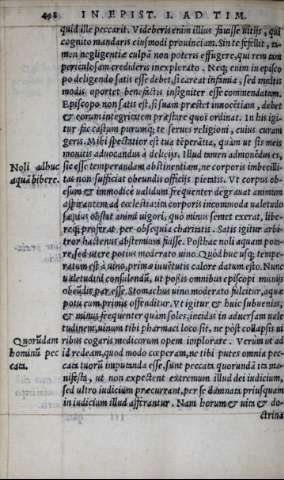 498 IN EPIST. I. AD TIM.
quid ille peccarit. Videberis enim illius fauisse uitijs, qui
cognito mandaris eiusmodi prouinciam. Sin te fefellit, ta-
men negligentiæ culpā non poteris effugere, qui rem tam
periculosam credideris inexplorato. Neq; enim in episco
po deligendo satis esse debet, si careat infamia, sed multis
modis oportet benefactis insigniter esse commendatum.
Episcopo non satis est, si suam præstet innocētiam, debet
& eorum integritatem præstare quos ordinat. In his igi-
tur fac castum purumq; te serues religioni, cuius curam
geris. Mihi spectatior est tua tēperātia, quàm ut sis meis
monitis aduocandus à delicijs. Illud tamen admonēdus es,
Noli adhuc
aquā bibere.
sic esse temperandam abstinentiam, ne corporis imbecilli-
tas non sufficiat obeundis officijs pietatis. Vt corpus ob-
esum & immodicè ualidum frequenter degrauat animum
aspirantem ad cœlestia: ita corporis incommoda ualetudo
sæpius obstat animi uigori, quo minus semet exerat, libe-
req; proferat per obsequia charitatis. Satis igitur arbi-
tror hactenus abstemium fuisse. Posthac noli aquam pota-
re, sed utere potius moderato uino. Quòd huc usq; tempe-
ratum est à uino, prima iuuētutis calore datum esto. Nunc
ualetudini consulendū, ut possis omnibus episcopi munijs
obeūdis par esse. Stomachus uino moderato fulcitur, aquæ
potu cum primis offenditur. Vt igitur & huic subuenias,
& minus frequenter quàm soles, incidas in aduersam uale
tudinem, uinum tibi pharmaci loco sit, ne pòst collapsis ui
Quorūdam
hominū pec
cata.
ribus cogaris medicorum opem implorare. Verùm ut ad
id redeam, quod modo cœperam, ne tibi putes omnia pec-
cata tuorū imputanda esse. Sunt peccata quorundā ita ma-
nifesta, ut non expectent extremum illud dei iudicium,
sed ultro iudicium præcurrant, per se damnata priusquam
in iudicium illud afferantur. Nam horum & uita & do-
ctrina